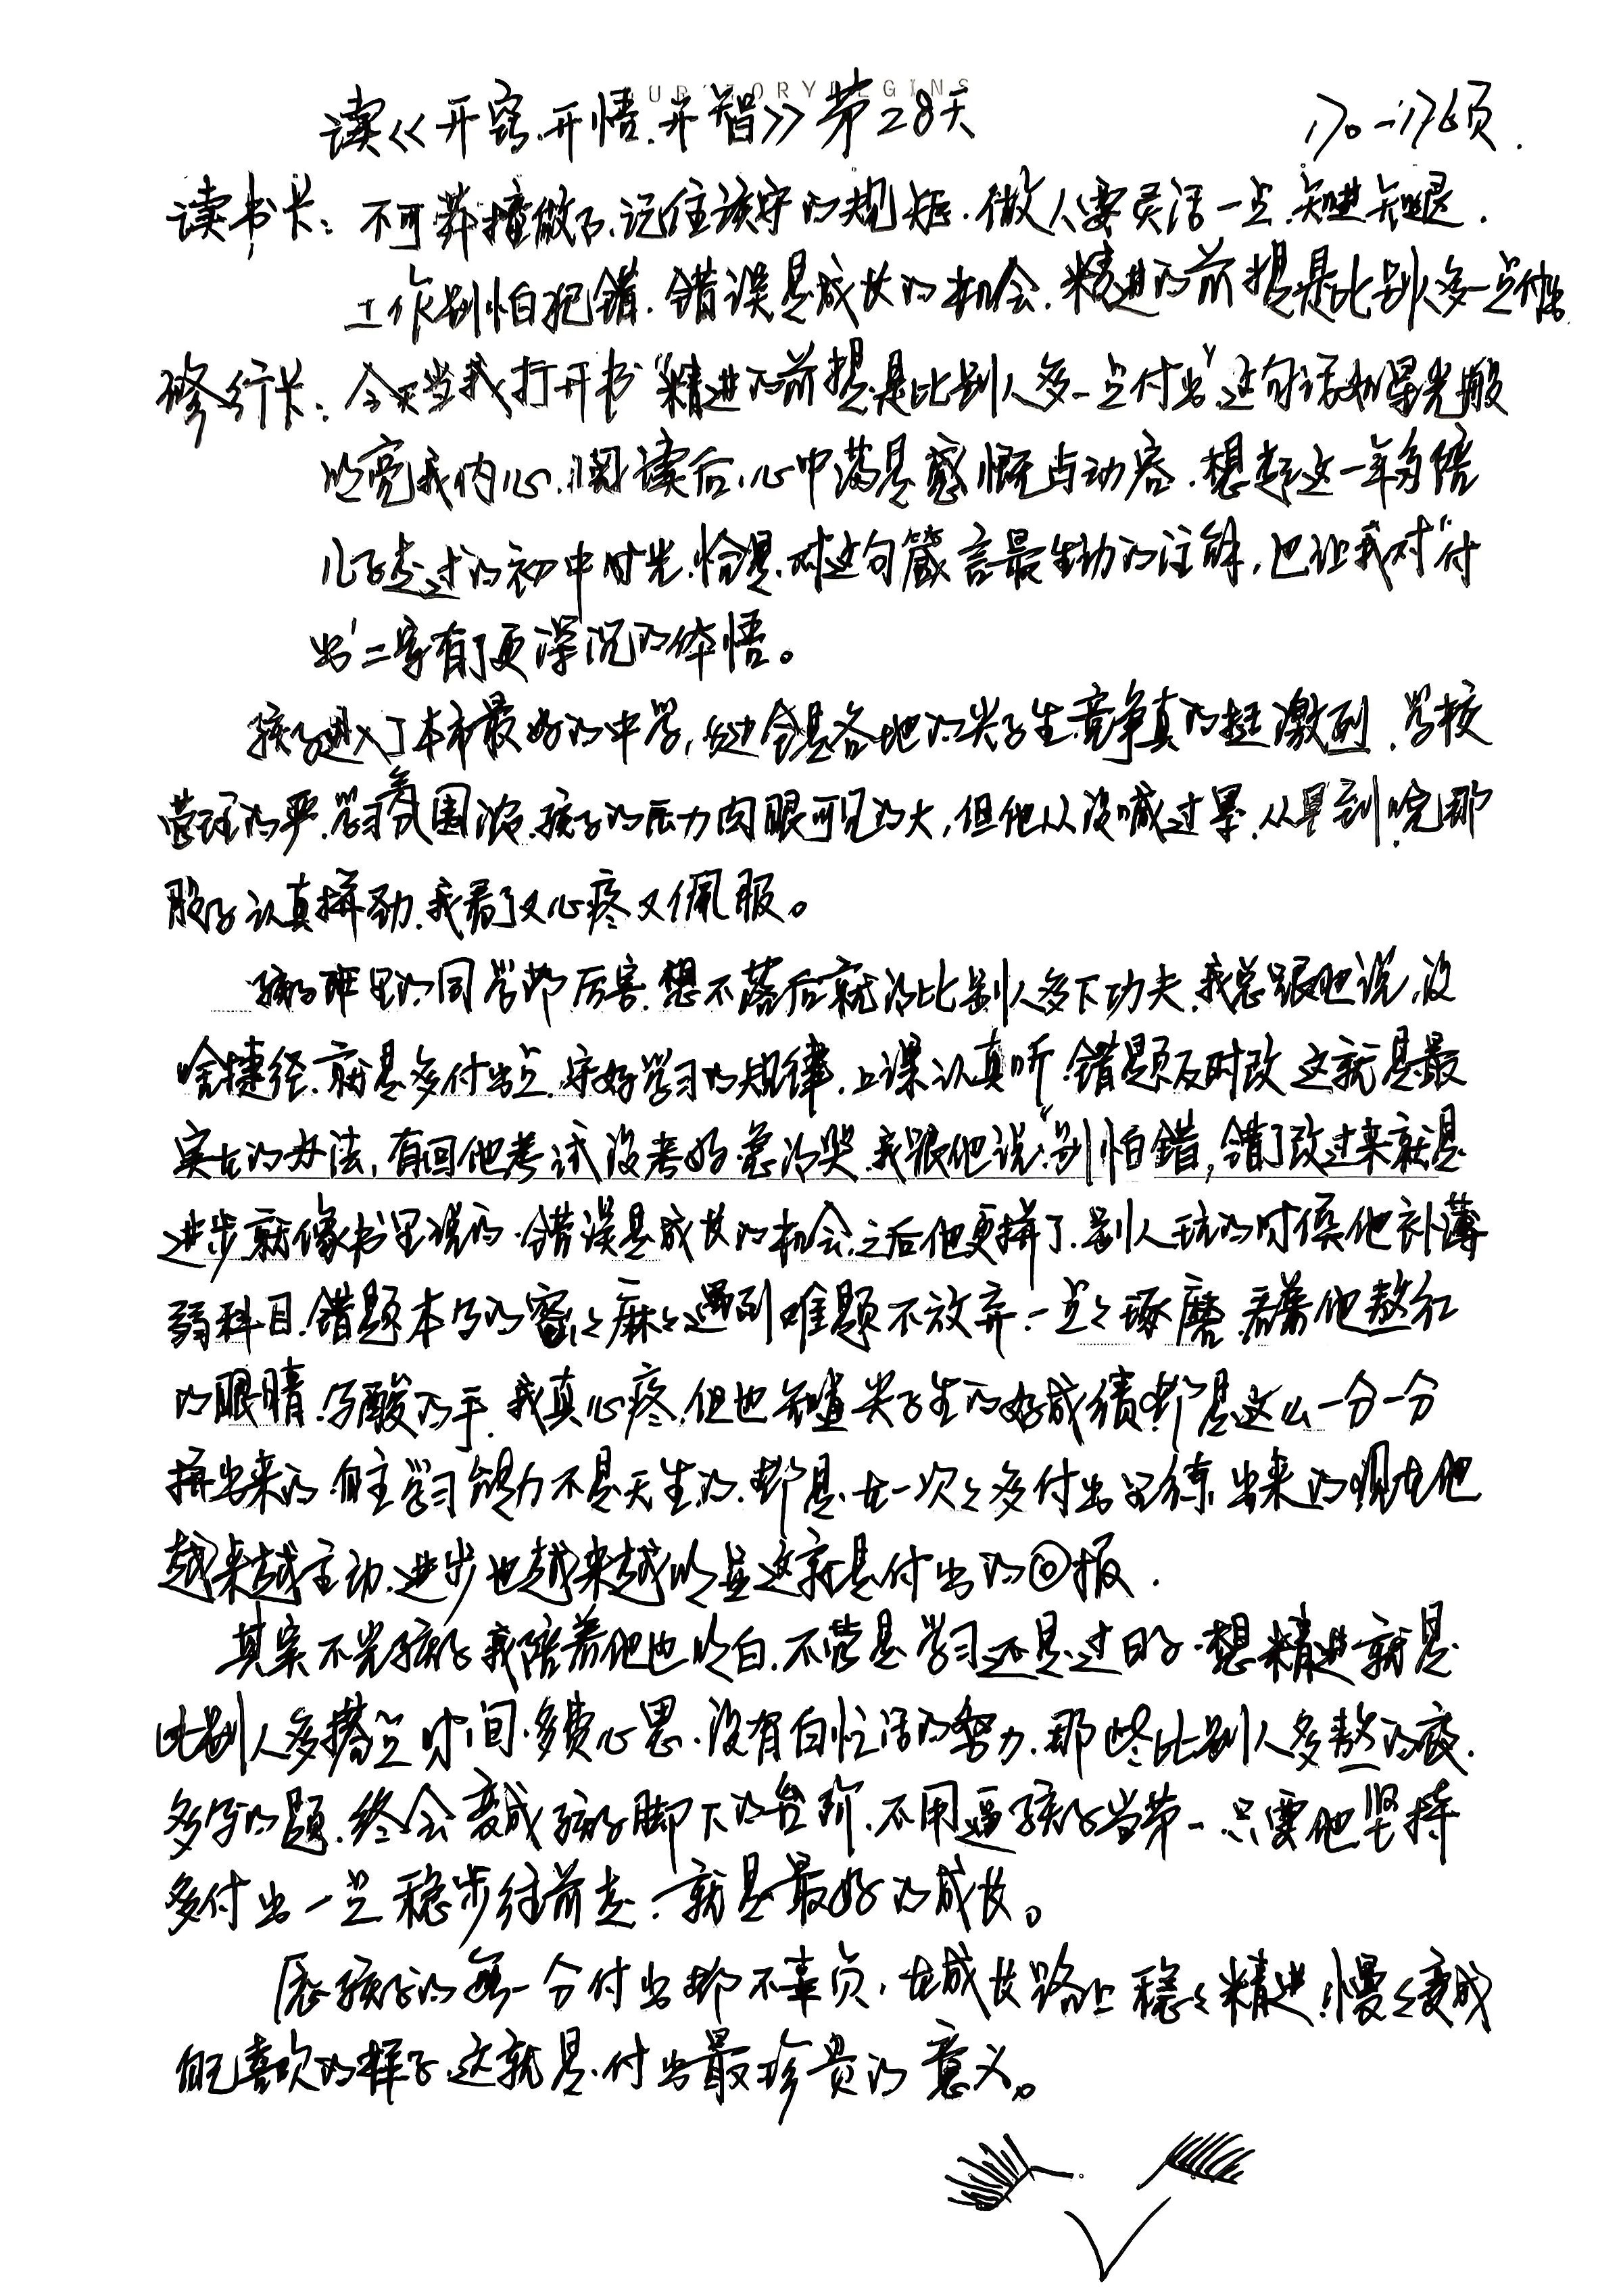 OUR STORY BEGINS
读《开窍.开悟.开智》第28天 170-176页.
读书卡: 不可莽撞做事.记住该守的规矩.做人要灵活一点.知进知退.
工作别怕犯错.错误是成长的机会.精进的前提是比别人多一点付出.
修行卡: 今天当我打开书“精进的前提是比别人多一点付出”这句话如曙光般
照亮我内心.阅读后,心中满是感慨与动容.想起这一年多陪
儿子走过的初中时光.恰是对这句箴言最生动的注解,也让我对“付
出”二字有了更深沉的体悟。
孩子进入了本市最好的中学,身边全是各地的尖子生.竞争真的挺激烈.学校
管理的严.学习氛围浓.孩子的压力肉眼可见的大,但他从没喊过累.从早到晚那
股子认真拼劲.我看了又心疼又佩服。
孩子班里的同学都厉害.想不落后就得比别人多下功夫.我总跟他说,没
啥捷径.就是多付出点.守好学习的规律.上课认真听.错题及时改 这就是最
实在的办法,有回他考试没考好.急得哭.我跟他说“别怕错,错了改过来就是
进步.就像书里说的.错误是成长的机会.之后他更拼了.别人玩的时候他补薄
弱科目.错题本写的密々麻々遇到难题不放弃.一点々琢磨.看着他熬红
的眼睛.写酸的手.我真心疼.但也知道尖子生的好成绩都是这么一分一分
拼出来的.自主学习能力不是天生的.都是在一次々多付出里练出来的.现在他
越来越主动.进步也越来越明显这就是付出的回报.
其实不光孩子.我陪着他也明白.不管是学习还是过日子.想精进就是
比别人多搭点时间.多费心思.没有白忙活的努力.那些比别人多熬的夜.
多写的题.终会变成孩子脚下的台阶.不用逼孩子当第一.只要他坚持
多付出一点.稳步往前走.就是最好的成长。
愿孩子的每一分付出都不辜负,在成长路上稳々精进.慢々变成
自己喜欢的样子.这就是付出最珍贵的意义。